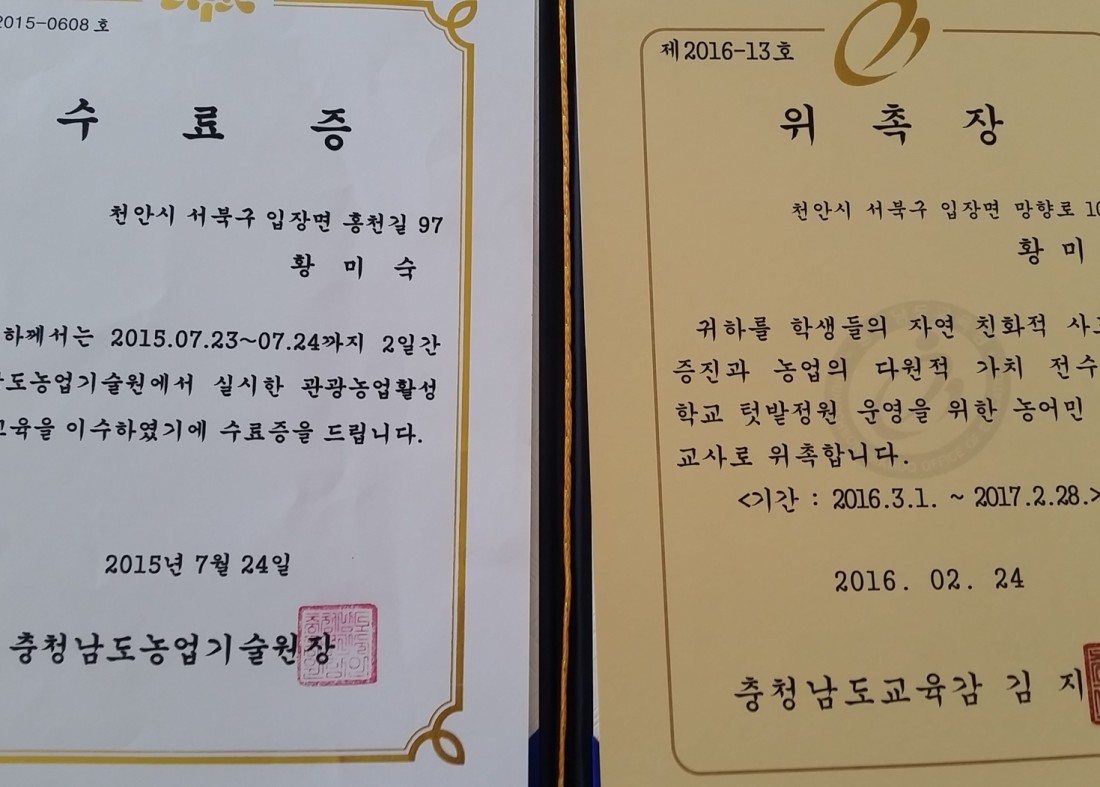 2015-0608 호
수 료 증
천안시 서북구 입장면 홍천길 97
황 미 숙
하께서는 2015.07.23~07.24까지 2일간
도농업기술원에서 실시한 관광농업활성
교육을 이수하였기에 수료증을 드립니다.
2015년 7월 24일
충청남도농업기술원장
제2016-13호
위 촉 장
천안시 서북구 입장면 망향로 10
황 미
귀하를 학생들의 자연 친화적 사고
증진과 농업의 다원적 가치 전수
학교 텃밭정원 운영을 위한 농어민
교사로 위촉합니다.
<기간 : 2016.3.1. ~ 2017.2.28.>
2016. 02. 24
충청남도교육감 김 지